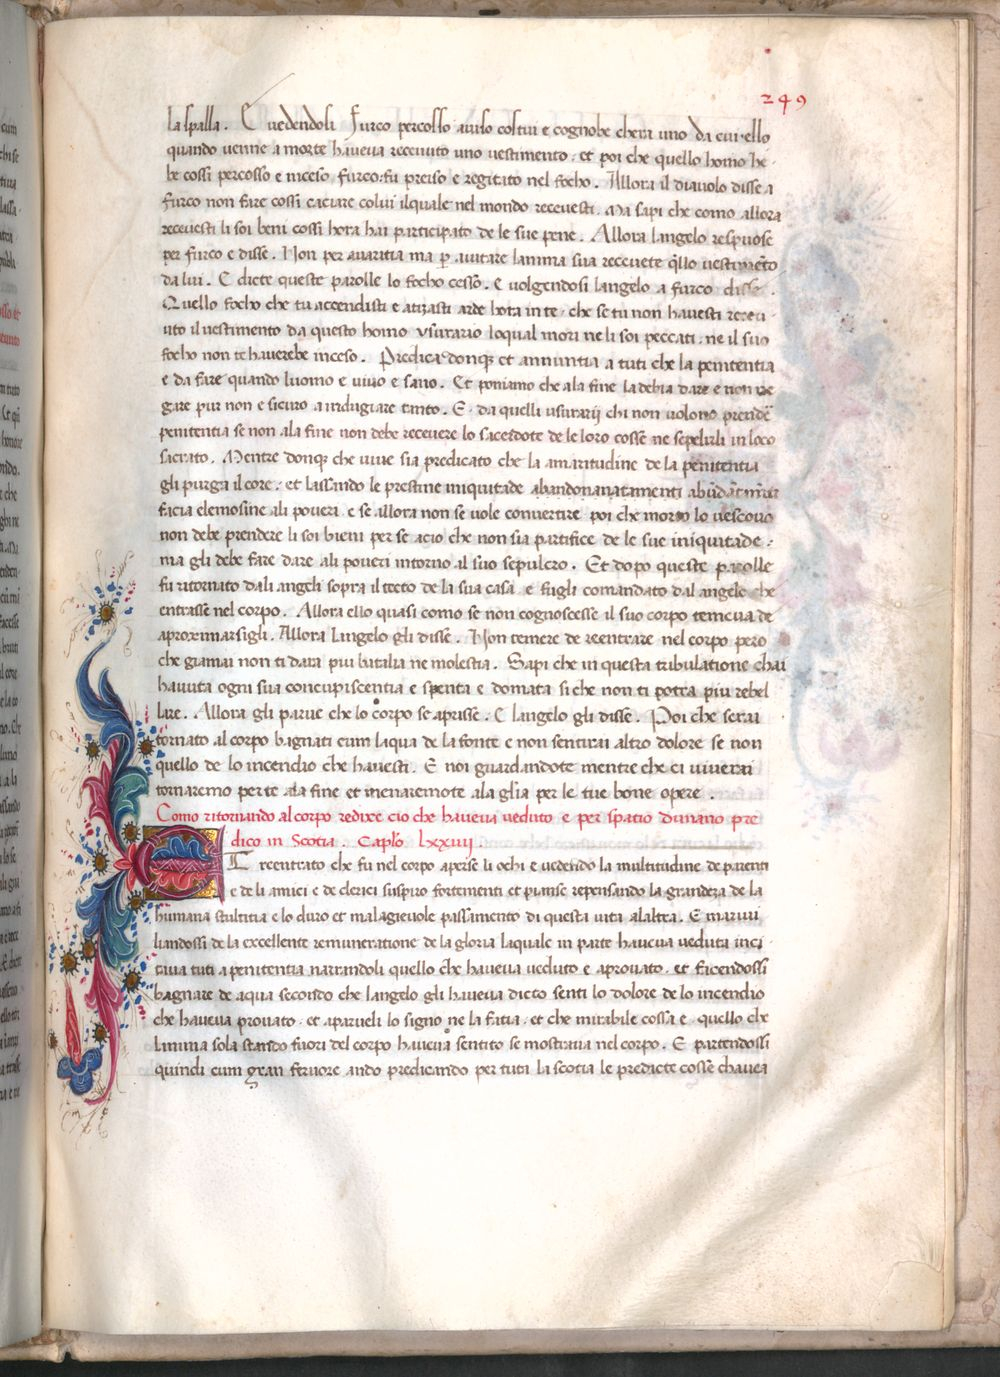 249
la spalla. E vedendoli furco percosso auiso costui e cognobe chera uno da cui ello
quando uenne a morte haueua receuuto uno uestimento. et poi che quello homo he
be cossi percosso e inceso furco: fu preiso e regitato nel focho. Allora il diauolo disse a
furco non fare cossi caciare colui ilquale nel mondo receuesti. Ma sapi che como allora
receuesti li soi beni cossi hora hai participato de le sue pene. Allora langelo respuose
per furco e disse. Non per auaritia ma p̱ aiutare lanima sua receuete q̃llo uestimẽto
da lui. E diete queste parolle lo focho cessò. E uolgendosi langelo a furco disse.
Quello focho che tu accendisti e atizasti arde hora in te. che se tu non hauesti receu
uto il uestimento da questo homo vsurario loqual mori ne li soi peccati. ne il suo
focho non te hauerebe inceso. Predica donqꝫ et annuntia a tuti che la penitentia
e da fare quando luomo e uiuo e sano. Et poniamo che ala fine la debia dare e non ne
gare pur non e sicuro a indugiare tanto. E da quelli usurarij chi non uolono prende
penitentia se non ala fine non debe receuere lo sacerdote de le loro cosse ne sepelirli in loco
sacrato. Mentre donqꝫ che uiue sia predicato che la amaritudine de la penitentia
gli purga il core. et lassando le prestine iniquitade abandonanatamenti
facia elemosine ali poueri. e se allora non se uole conuertire poi che morto lo uescouo
non debe prendere li soi bieni per se acio che non sia partifice de le sue iniquitade:
ma gli debe fare dare ali poueri intorno al suo sepulcro. Et dopo queste parolle
fu ritornato dali angeli sopra il tecto de la sua casa e fugli comandato dal angelo che
entrasse nel corpo. Allora ello quasi como se non cognoscesse il suo corpo temeua de
aproximarsigli. Allora langelo gli disse. Non temere de reentrare nel corpo pero
che giamai non ti dara piu batalia ne molestia. Sapi che in questa tribulatione chai
hauuta ogni sua concupiscentia e spenta e domata si che non ti potra piu rebel
lare. Allora gli parue che lo corpo se aprisse. E langelo gli disse. Poi che serai
tornato al corpo bagnati cum laqua de la fonte e non sentirai altro dolore se non
quello de lo incendio che hauesti. E noi guardandote mentre che ci uiuerai
tornaremo per te ala fine et menaremote ala glia per le tue bone opere.
Como ritornando al corpo redixe cio che haueua ueduto e per spatio dunano pre
dico in Scotia. Caplo. lxxiiij.
ET reentrato che fu nel corpo aperse li ochi e uedendo la multitudine de parenti
e de li amici e de clerici suspiro fortementi et piamse repensando la grandeza de la
humana stultitia e lo duro et malageuole passamento di questa uita alaltra. E maraui
liandossi de la excellente remuneratione de la gloria laquale in parte haueua ueduta inci
taua tuti a penitentia narrandoli quello che haueua ueduto e aprouato. et facendossi
bagnare de aqua secondo che langelo gli haueua dicto senti lo dolore de lo incendio
che haueua prouato. et aparueli lo signo ne la fatia. et che mirabile cossa e quello che
lanima sola stando fuori del corpo haueua sentito se mostraua nel corpo. E partendossi
quindi cum gran feruore ando predicando per tuti la scotia le predicte cosse chauea